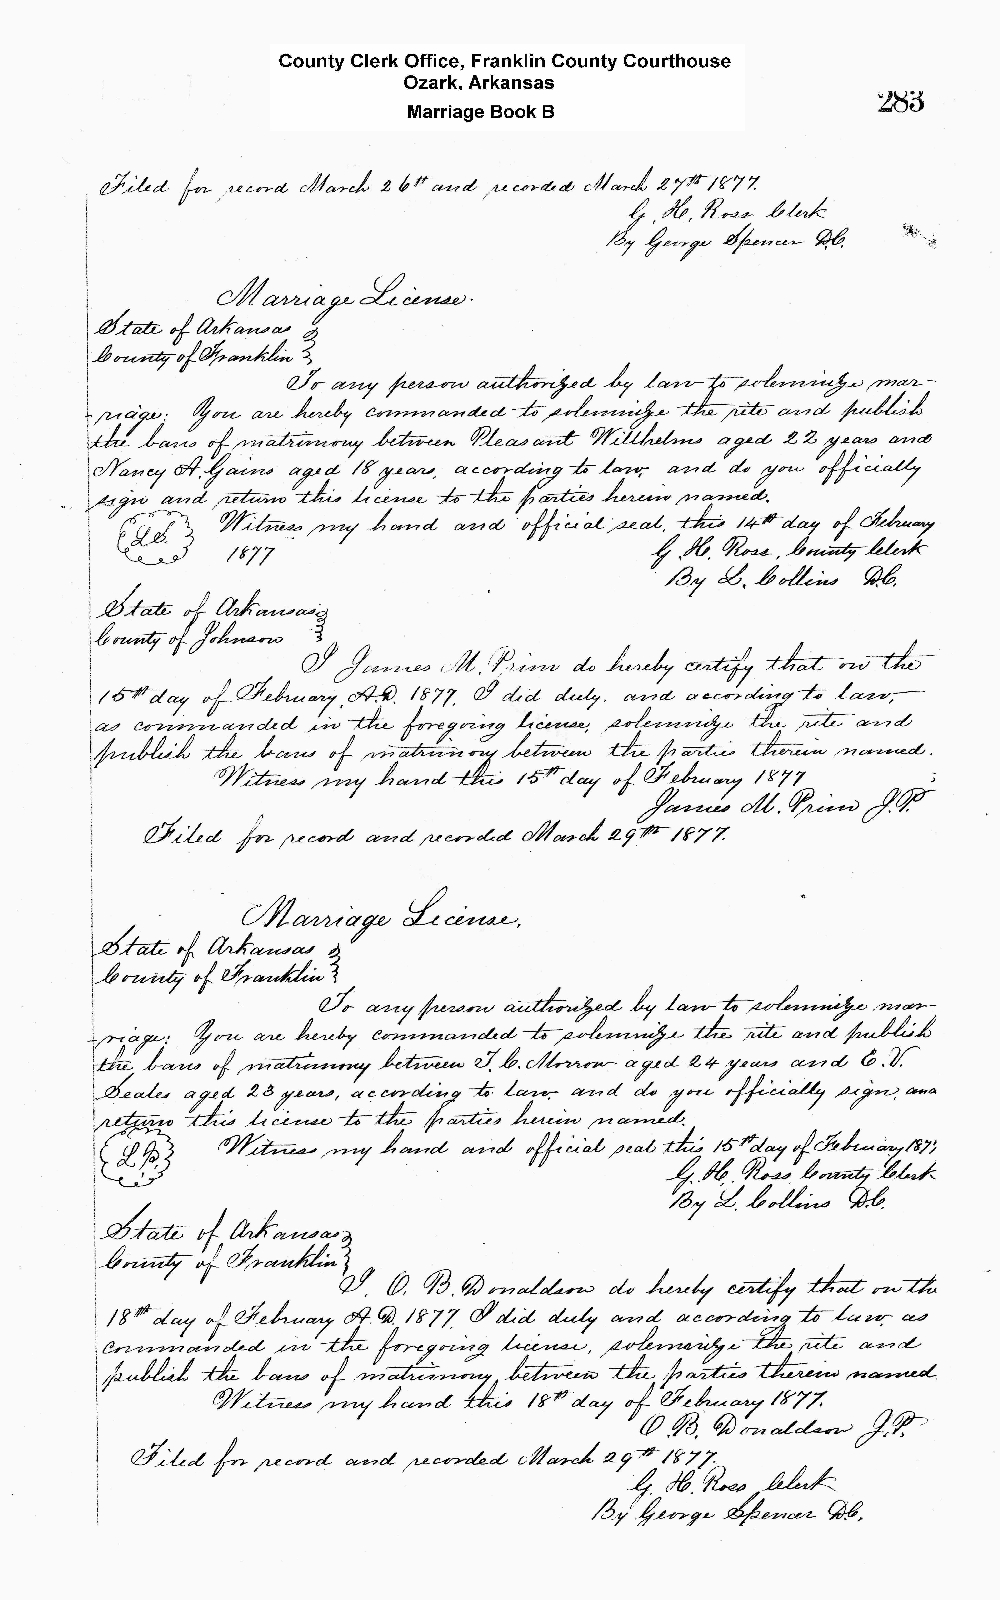 County Clerk Office, Franklin County Courthouse
Ozark, Arkansas
Marriage Book B
283
Filed for record March 26th and recorded March 27th 1877.
G. H. Ross Clerk
By George Spencer D.C.
Marriage License.
State of Arkansas
County of Franklin
To any person authorized by law to solemnize mar-
riage: You are hereby commanded to solemnize the rite and publish
the bans of matrimony between Pleasant Willhelms aged 22 years and
Nancy A. Gains aged 18 years, according to law, and do you officially
sign and return this license to the parties herein named.
L.S. Witness my hand and official seal, this 14th day of February
1877
G. H. Ross, County Clerk
By L. Collins D.C.
State of Arkansas
County of Johnson
I James M. Prim do hereby certify that on the
15th day of February, A.D. 1877, I did duly, and according to law,
as commanded in the foregoing license, solemnize the rite and
publish the bans of matrimony between the parties therein named.
Witness my hand this 15th day of February 1877
James M. Prim J.P.
Filed for record and recorded March 29th 1877.
Marriage License.
State of Arkansas
County of Franklin
To any person authorized by law to solemnize mar-
riage: You are hereby commanded to solemnize the rite and publish
the bans of matrimony between T. C. Morrow aged 24 years and E. V.
Seales aged 23 years, according to law, and do you officially sign, and
return this license to the parties herein named.
L.S. Witness my hand and official seal this 15th day of February 187
G. H. Ross County Clerk
By L. Collins D.C.
State of Arkansas
County of Franklin
I, O. B. Donaldson do hereby certify that on the
18th day of February A.D. 1877, I did duly and according to law, as
commanded in the foregoing license, solemnize the rite and
publish the bans of matrimony, between the parties therein named
Witness my hand this 18th day of February 1877.
O. B. Donaldson J.P.
Filed for record and recorded March 29th 1877.
G. H. Ross Clerk
By George Spencer D.C.